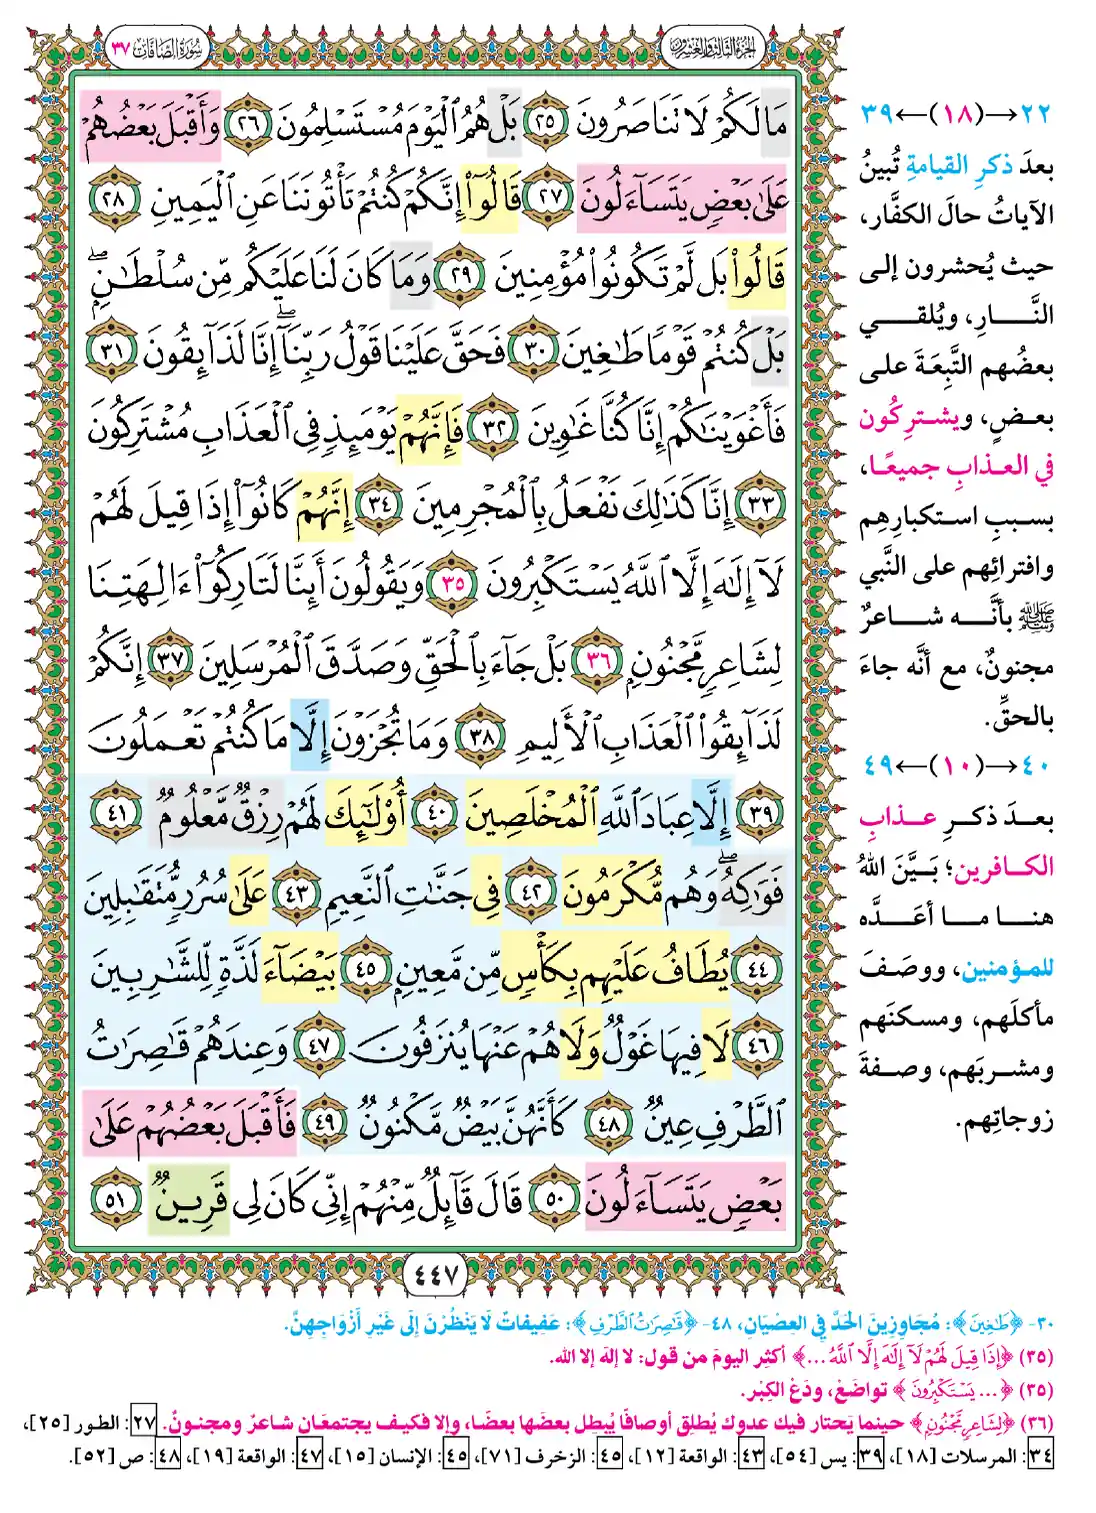 الجزء الثالث والعشرون
سورة الصافات ٣٧
مَا لَكُمْ لَا تَنَاصَرُونَ ٢٥ بَلْ هُمُ ٱلْيَوْمَ مُسْتَسْلِمُونَ ٢٦ وَأَقْبَلَ بَعْضُهُمْ
عَلَىٰ بَعْضٍ يَتَسَآءَلُونَ ٢٧ قَالُوٓا۟ إِنَّكُمْ كُنتُمْ تَأْتُونَنَا عَنِ ٱلْيَمِينِ ٢٨
قَالُوا۟ بَل لَّمْ تَكُونُوا۟ مُؤْمِنِينَ ٢٩ وَمَا كَانَ لَنَا عَلَيْكُم مِّن سُلْطَٰنٍۭ ۖ
بَلْ كُنتُمْ قَوْمًا طَٰغِينَ ٣٠ فَحَقَّ عَلَيْنَا قَوْلُ رَبِّنَآ ۖ إِنَّا لَذَآئِقُونَ ٣١
فَأَغْوَيْنَٰكُمْ إِنَّا كُنَّا غَٰوِينَ ٣٢ فَإِنَّهُمْ يَوْمَئِذٍ فِى ٱلْعَذَابِ مُشْتَرِكُونَ
٣٣ إِنَّا كَذَٰلِكَ نَفْعَلُ بِٱلْمُجْرِمِينَ ٣٤ إِنَّهُمْ كَانُوٓا۟ إِذَا قِيلَ لَهُمْ
لَآ إِلَٰهَ إِلَّا ٱللَّهُ يَسْتَكْبِرُونَ ٣٥ وَيَقُولُونَ أَئِنَّا لَتَارِكُوٓا۟ ءَالِهَتِنَا
لِشَاعِرٍ مَّجْنُونٍۭ ٣٦ بَلْ جَآءَ بِٱلْحَقِّ وَصَدَّقَ ٱلْمُرْسَلِينَ ٣٧ إِنَّكُمْ
لَذَآئِقُوا۟ ٱلْعَذَابِ ٱلْأَلِيمِ ٣٨ وَمَا تُجْزَوْنَ إِلَّا مَا كُنتُمْ تَعْمَلُونَ
٣٩ إِلَّا عِبَادَ ٱللَّهِ ٱلْمُخْلَصِينَ ٤٠ أُو۟لَٰٓئِكَ لَهُمْ رِزْقٌ مَّعْلُومٌ ٤١
فَوَٰكِهُ ۖ وَهُم مُّكْرَمُونَ ٤٢ فِى جَنَّٰتِ ٱلنَّعِيمِ ٤٣ عَلَىٰ سُرُرٍ مُّتَقَٰبِلِينَ
٤٤ يُطَافُ عَلَيْهِم بِكَأْسٍ مِّن مَّعِينٍۭ ٤٥ بَيْضَآءَ لَذَّةٍ لِّلشَّٰرِبِينَ
٤٦ لَا فِيهَا غَوْلٌ وَلَا هُمْ عَنْهَا يُنزَفُونَ ٤٧ وَعِندَهُمْ قَٰصِرَٰتُ
ٱلطَّرْفِ عِينٌ ٤٨ كَأَنَّهُنَّ بَيْضٌ مَّكْنُونٌ ٤٩ فَأَقْبَلَ بَعْضُهُمْ عَلَىٰ
بَعْضٍ يَتَسَآءَلُونَ ٥٠ قَالَ قَآئِلٌ مِّنْهُمْ إِنِّى كَانَ لِى قَرِينٌ ٥١
٤٤٧
٢٢→(١٨)←٣٩
بعدَ ذكرِ القيامةِ تُبينُ
الآياتُ حالَ الكفَّار،
حيث يُحشرون إلى
النَّارِ، ويُلقي
بعضُهم التَّبِعَةَ على
بعضٍ، ويشترِكُون
في العذابِ جميعًا،
بسببِ استكبارِهِم
وافترائِهم على النَّبي
ﷺ بأنَّه شاعرٌ
مجنونٌ، مع أنَّه جاءَ
بالحقِّ.
٤٠→(١٠)←٤٩
بعدَ ذكرِ عذابِ
الكافرين؛ بَيَّنَ اللهُ
هنا ما أعَدَّه
للمؤمنين، ووصَفَ
مأكلَهم، ومسكنَهم
ومشربَهم، وصفةَ
زوجاتِهم.
٣٠- ﴿طَٰغِينَ﴾: مُجَاوِزِينَ الحَدَّ فِي العِصْيَانِ، ٤٨- ﴿قَٰصِرَٰتُ ٱلطَّرْفِ﴾: عَفِيفَاتٌ لَا يَنْظُرْنَ إِلَى غَيْرِ أَزْوَاجِهِنَّ.
(٣٥) ﴿إِذَا قِيلَ لَهُمْ لَآ إِلَٰهَ إِلَّا ٱللَّهُ ...﴾ أكثِر اليومَ من قول: لا إله إلا الله.
(٣٥) ﴿... يَسْتَكْبِرُونَ﴾ تواضَعْ، ودَعْ الكِبْر.
(٣٦) ﴿لِشَاعِرٍ مَّجْنُونٍ﴾ حينما يَحتار فيك عدوك يُطلِق أوصافًا يُبطِل بعضَها بعضًا، وإلا فكيف يجتمعَان شاعرٌ ومجنونٌ. ٢٧: الطور [٢٥]،
٣٤: المرسلات [١٨]، ٣٩: يس [٥٤]، ٤٣: الواقعة [١٢]، ٤٥: الزخرف [٧١]، ٤٥: الإنسان [١٥]، ٤٧: الواقعة [١٩]، ٤٨: ص [٥٢].